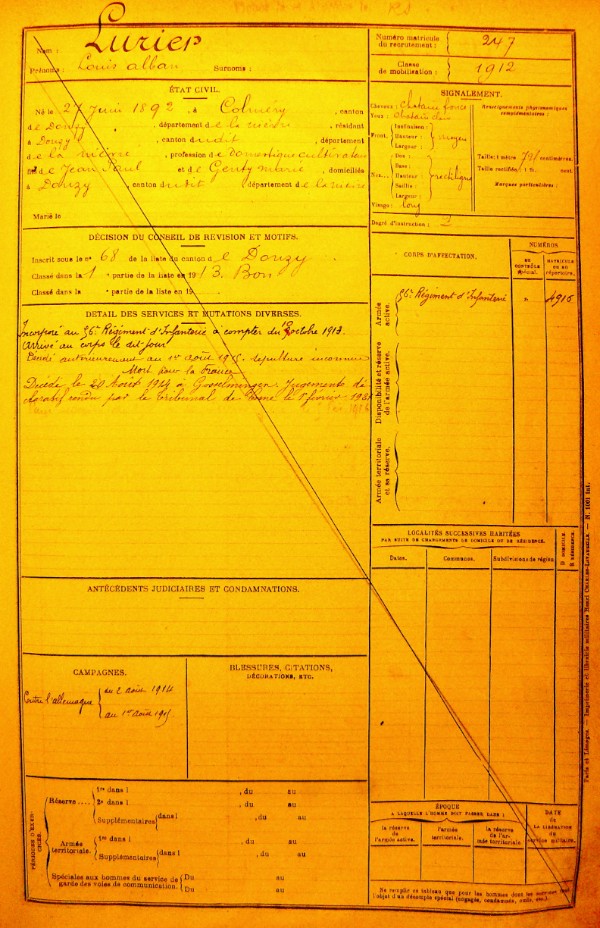 Nom : Lurier
Prénoms : Louis alban Surnoms :
Numéro matricule du recrutement : 247
Classe de mobilisation : 1912
ÉTAT CIVIL.
Né le 27 Juin 1892, à Colméry, canton
de Donzy, département de la nièvre, résidant
à Donzy, canton dudit, département
de la nièvre, profession de domestique cultivateur
fils de Jean Paul et de Genty marie, domiciliés
à Donzy, canton dudit département de la nièvre
Marié le
SIGNALEMENT.
Cheveux : chatain foncé
Yeux : chatain clair
Front. Inclinaison :
Hauteur : moyen
Largeur :
Nez Dos :
Base :
Hauteur : rectiligne
Saillie :
Largeur :
Visage : long
Renseignements physionomiques complémentaires :
Taille : 1 mètre centimètres.
Taille rectifiée : 1 m. cent.
Marques particulières :
Degré d'instruction : 2
DÉCISION DU CONSEIL DE REVISION ET MOTIFS.
Inscrit sous le n° 68 de la liste du canton de Donzy
Classé dans la 1 partie de la liste en 1913. Bon
Classé dans la partie de la liste en 19
DÉTAIL DES SERVICES ET MUTATIONS DIVERSES.
Incorporé au Régiment d'Infanterie à compter du octobre 1913.
Arrivé au corps le dit jour
antérieurement au 1er août 1915. sépulture inconnue
Mort pour la France
Décédé le 20 Août 1914 à Gosselmingen Jugement
déclaratif rendu par le tribunal de Cosne le février
CORPS D'AFFECTATION.
NUMÉROS
AU CONTRÔLE spécial.
MATRICULE OU AU répertoire.
Armée active.
Régiment d'Infanterie
Disponibilité et réserve de l'armée active.
Armée territoriale et sa réserve.
LOCALITÉS SUCCESSIVES HABITÉES
PAR SUITE DE CHANGEMENTS DE DOMICILE OU DE RÉSIDENCE.
Dates. Communes. Subdivisions de région. D DOMICILE R RÉSIDENCE
ANTÉCÉDENTS JUDICIAIRES ET CONDAMNATIONS.
CAMPAGNES.
Contre l'allemagne
du 2 août 1914
au 1er Août 1915
BLESSURES, CITATIONS,
DÉCORATIONS, ETC.
PÉRIODES D'EXERCICES.
Réserve
1re dans l , du au
2e dans l , du au
Supplémentaires dans l , du au
Armée territoriale.
1re dans l , du au
Supplémentaires dans l , du au
Spéciales aux hommes du service de garde des voies de communication. Du au
Du au
ÉPOQUE
À LAQUELLE L'HOMME DOIT PASSER DANS :
la réserve de l'armée active.
l'armée territoriale.
la réserve de l'armée territoriale
DATE
DE LA LIBÉRATION DU service militaire.
Ne remplir ce tableau que pour les hommes dont les services font
l'objet d'un décompte spécial (engagés, condamnés, omis, etc.).
Paris et Limoges. — Imprimerie et librairie militaires Henri CHARLES-LAVAUZELLE